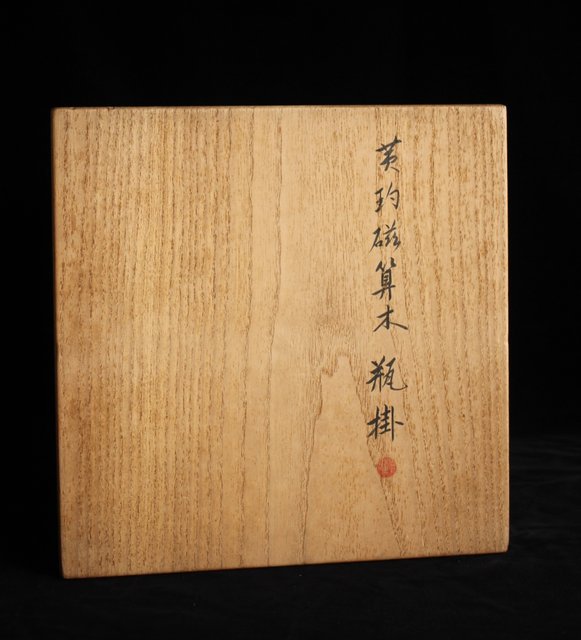 黄玓磁算木 瓶掛